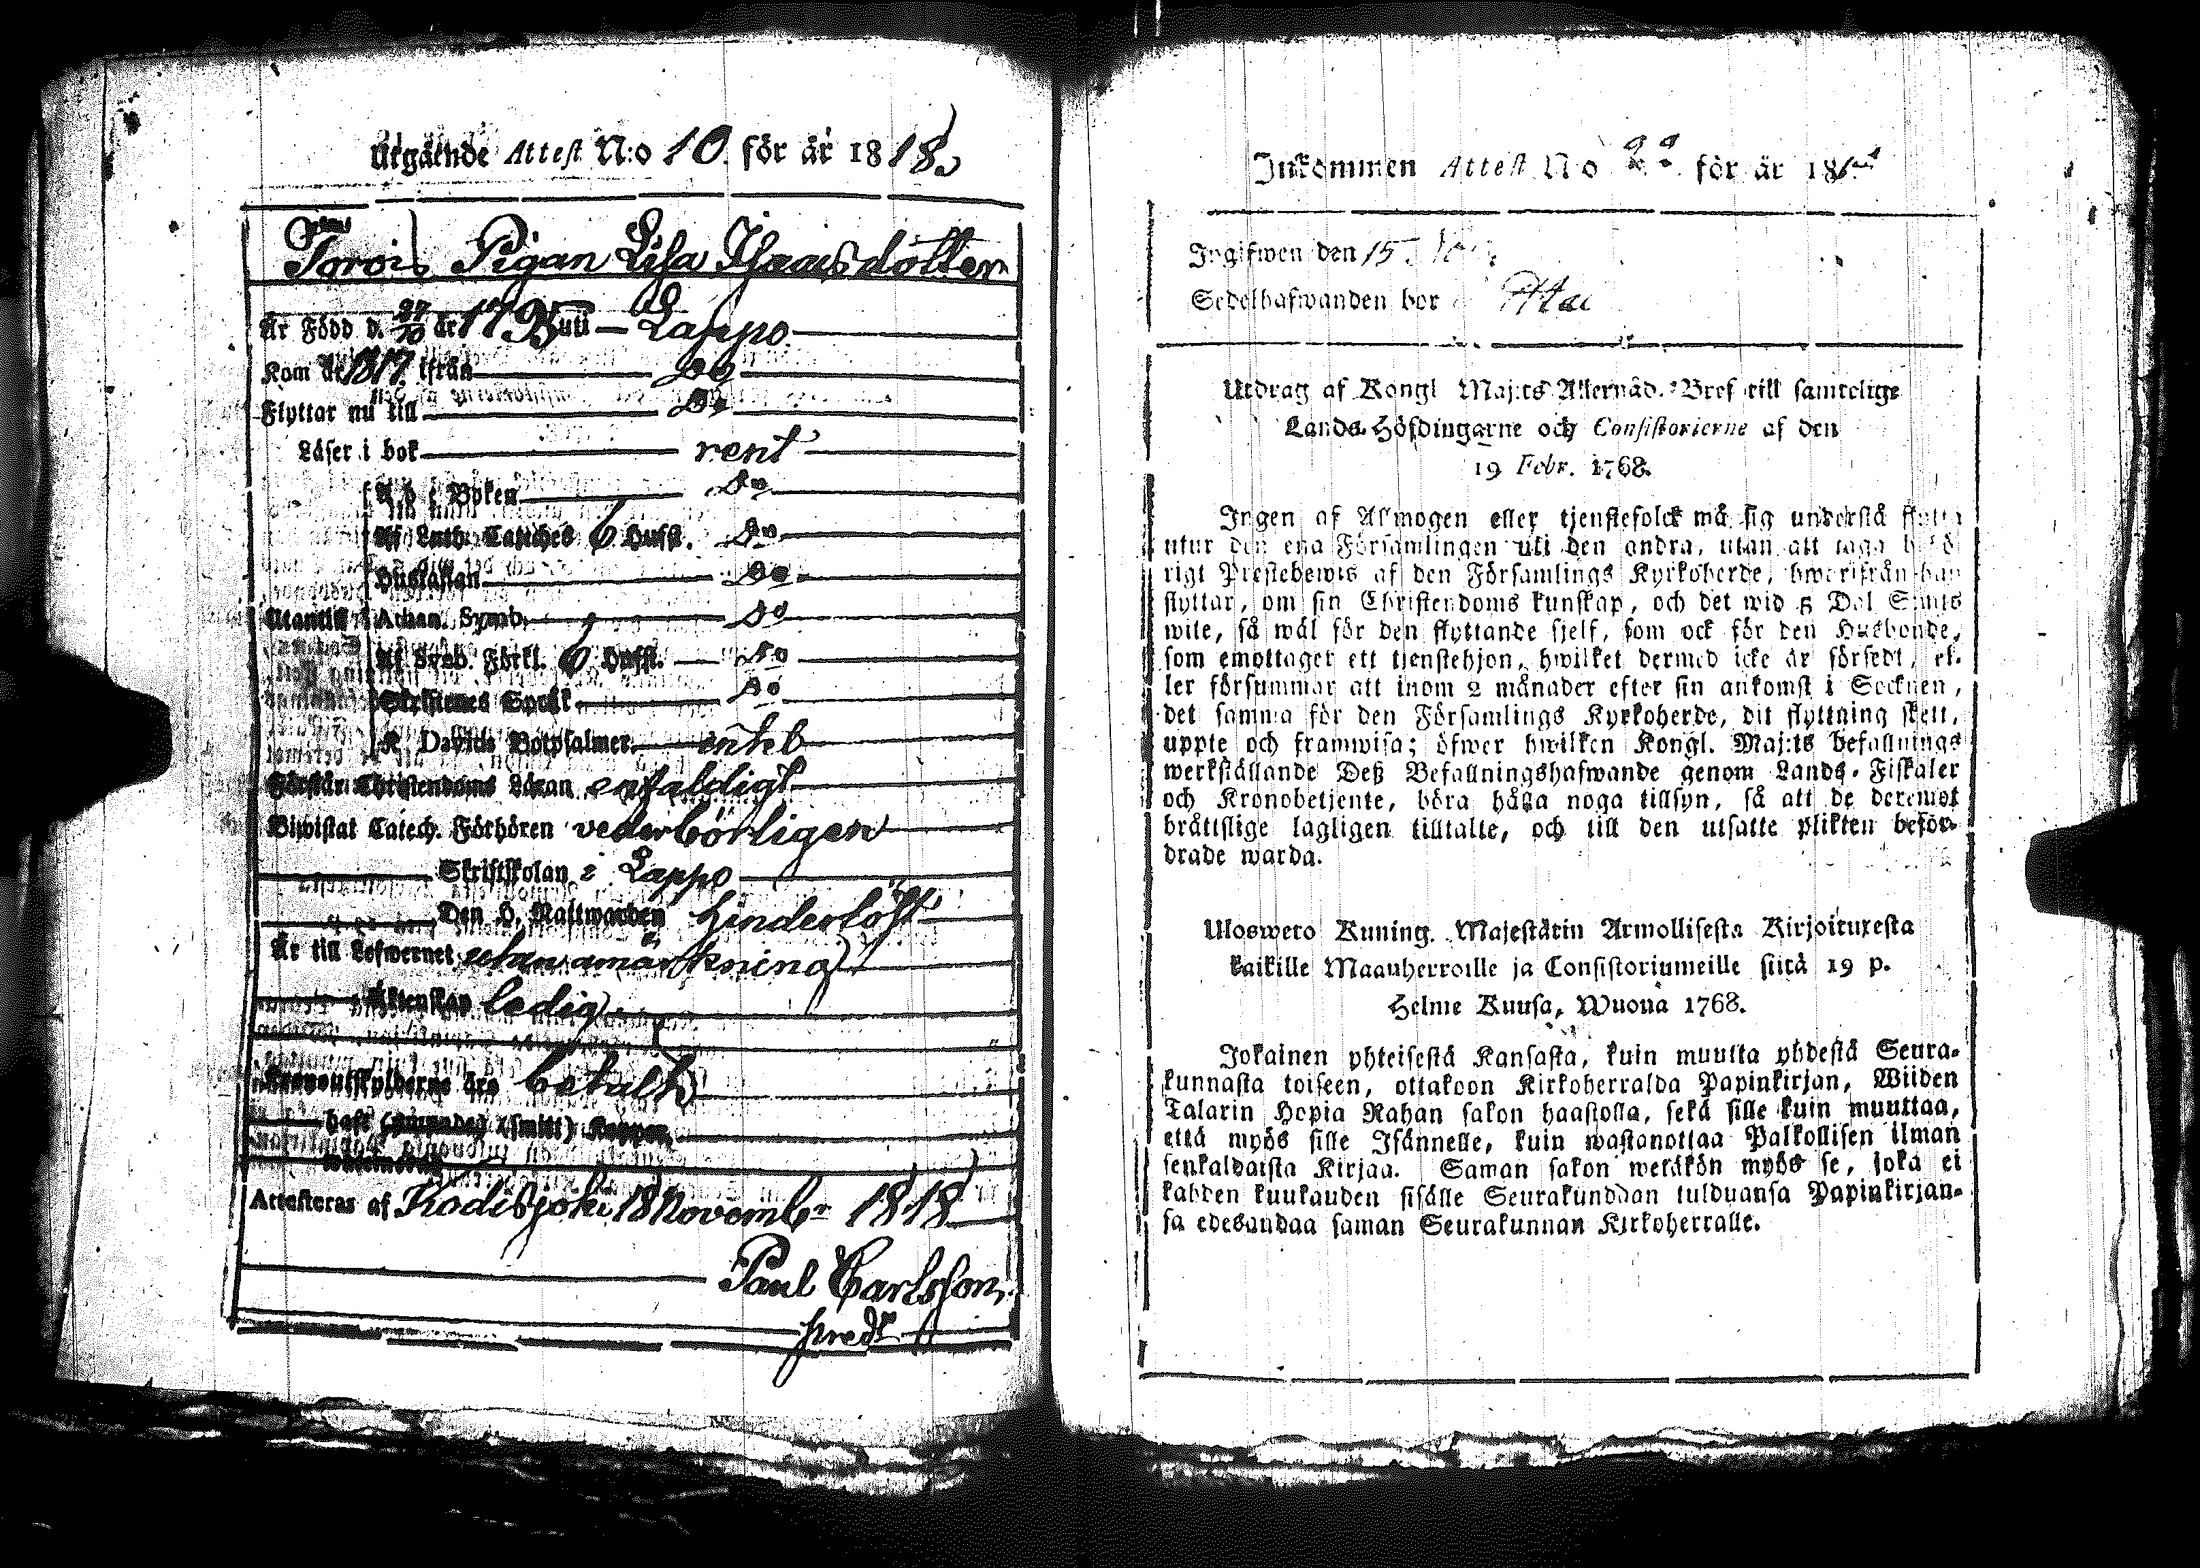 Utgående Attest N:o 10. för år 1818.
Torois Pigan Lisa Isaacsdotter
Är Född d. 27/10 år 1795 uti Lappo
Kom år 1817. ifrån Do
Flyttar nu till Do
Läser i bok rent
A b c Boken Do
Af Luth. Catiches 6 Hufst. Do
Hustaflan Do
Utantill Athan. Symb. Do
Af Sveb. Förkl. 6 Hufst. Do
Skriftenes Språk Do
K. Davids Botpsalmer
Förstår Christendoms Läran enfaldigt
Biwistat Catech. Förhören vederbörligen
Skriftskolan i Lappo
Den H. Nattwarden hinderlöst
Är till Lefwernet utan anmärkning
Äktenskap ledig
Kronoutskylderne äro betalte
haft Koppor
Attesteras af Kodisjoki 18 Novembr 1818
Paul Carlsson,
Inkommen Attest No för år 18
Ingifwen den 15
Sedelhafwanden bor
Utdrag af Kongl Maj:ts Allernåd. Bref till samtelige
Lands-Höfdingarne och Consistorierne af den
19 Febr. 1768.
Ingen af Allmogen eller tjenstefolck må sig understå flytta
utur den ena Församlingen uti den andra, utan att taga behö-
rigt Prestebewis af den Församlings Kyrkoherde, hwarifrån han
flyttar, om sin Christendoms kunskap, och det wid 5 Dal. S:mts
wite, så wäl för den flyttande sjelf, som ock för den Husbonde,
som emottager ett tjenstehjon, hwilket dermed icke är försedt, el-
ler försummar att inom 2 månader efter sin ankomst i Socknen,
det samma för den Församlings Kyrkoherde, dit flyttning skett,
uppte och framwisa; öfwer hwilken Kongl. Maj:ts befallnings
werkställande Deß Befallningshafwande genom Lands-Fiskaler
och Kronobetjente, böra hålla noga tillsyn, så att de deremot
bråttslige lagligen tilltalte, och till den utsatte plikten beför-
drade warda.
Uloswето Kuning. Majestätin Armollisesta Kirjoituxesta
kaikille Maanherroille ja Consistoriumeille siitä 19 p.
Helme Kuusa, Wuona 1768.
Jokainen yhteisestä Kansasta, kuin muutta yhdestä Seura-
kunnasta toiseen, ottakoon Kirkoherralda Papinkirjan, Wiiden
Talarin Hopia Rahan sakon haastolla, sekä sille kuin muuttaa,
että myös sille Isännelle, kuin wastanottaa Palkollisen ilman
senkaldaista Kirjaa. Saman sakon wetäkön myös se, joka ei
kahden kuukauden sisälle Seurakunddan tulduansa Papinkirjan-
sa edesandaa saman Seurakunnan Kirkoherralle.